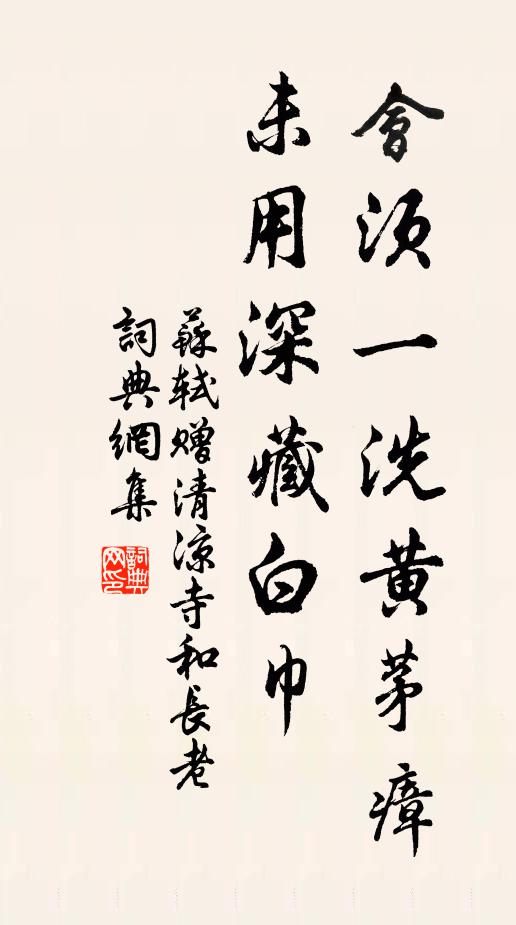 會須一洗黃茅瘴
未用深藏白𠆲巾
蘇軾贈清涼寺和長老
詞典網集
詞典网印